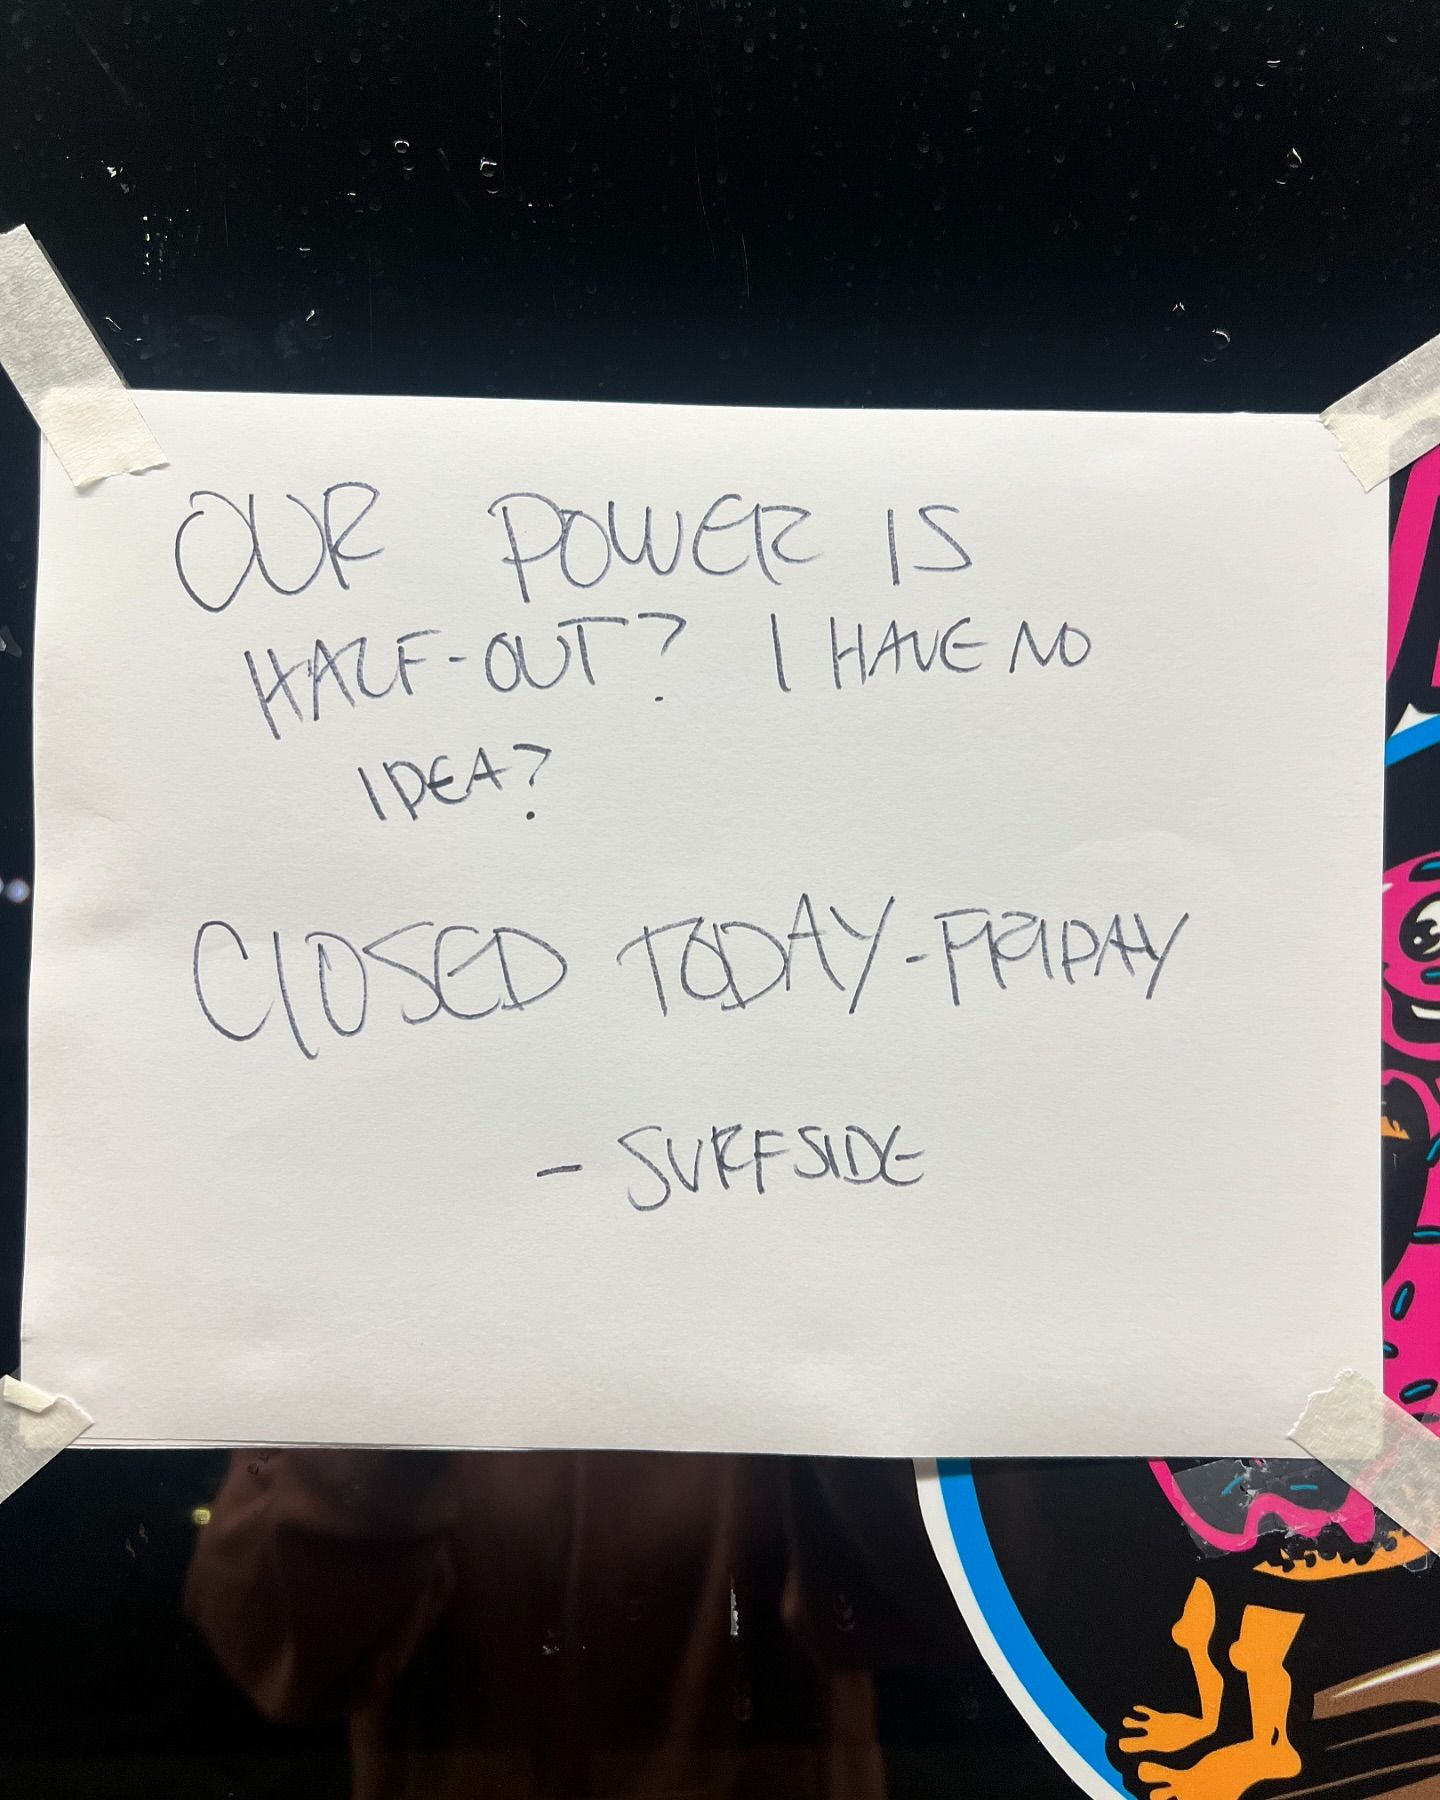 OUR POWER IS
HALF-OUT? I HAVE NO
IDEA?
CLOSED TODAY-FRIDAY
- SURFSIDE